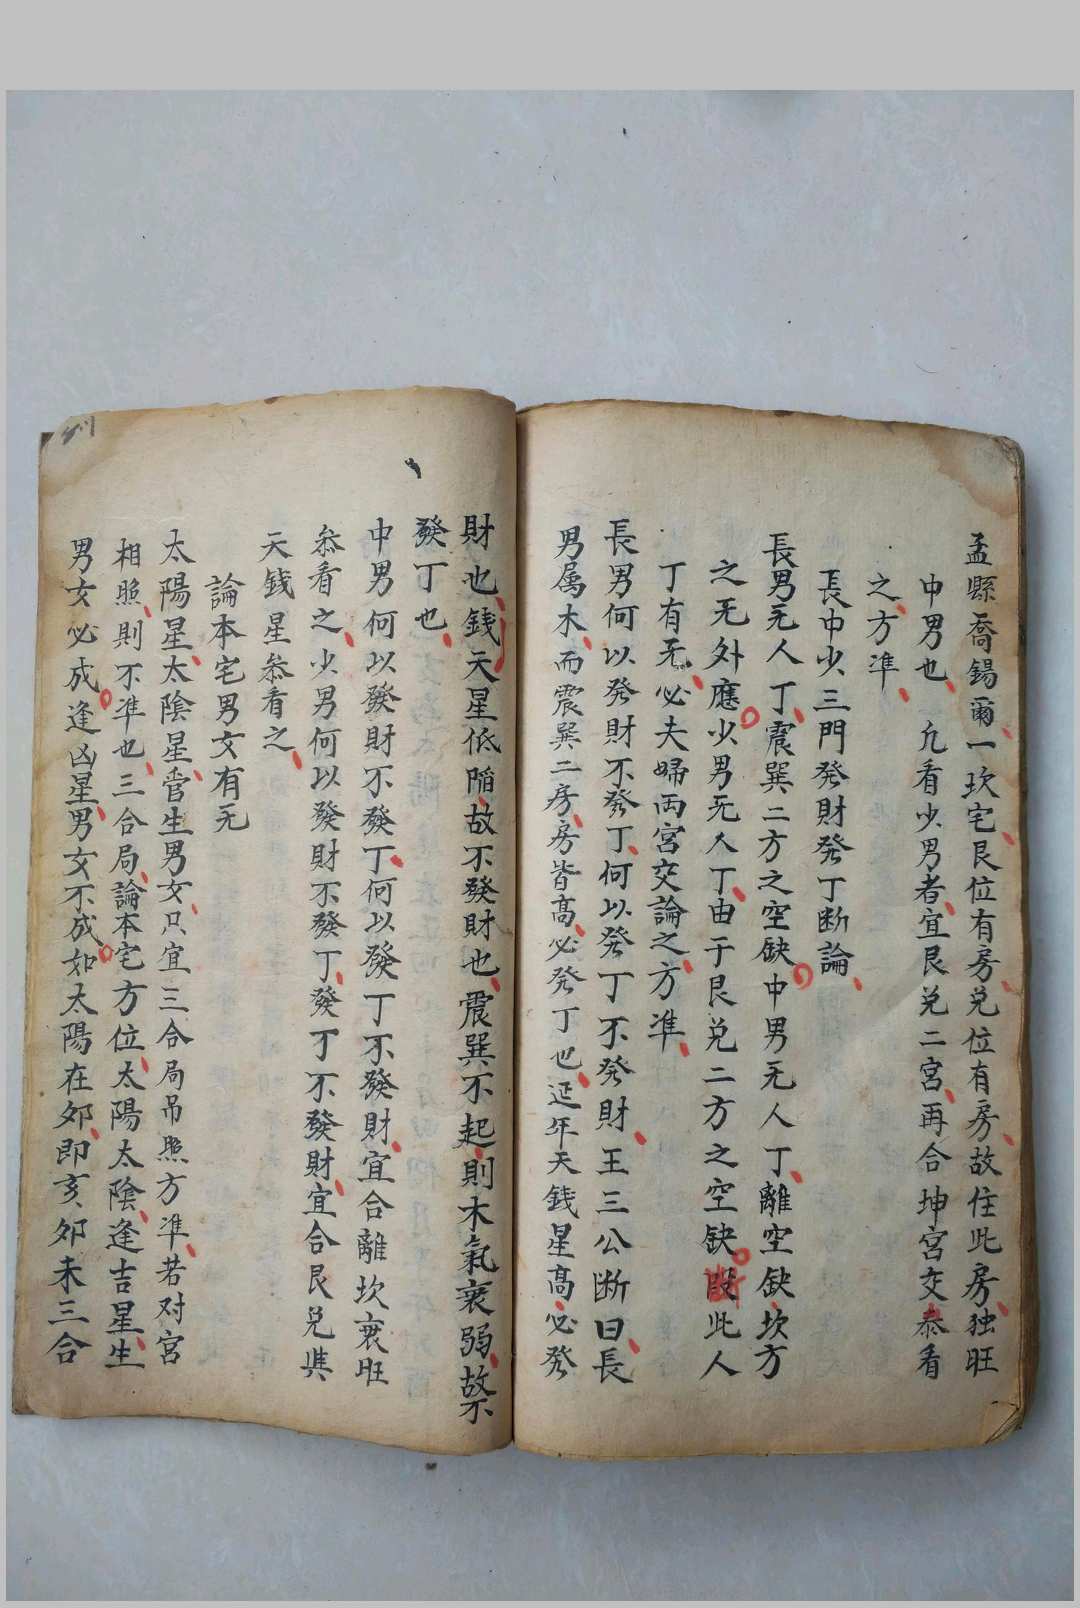 孟縣喬錫爾一坎宅艮位有房兑位有房故住此房独旺
中男也 凢看少男者宜艮兑二宮再合坤宮交泰看
之方準
長中少三門發財發丁断論
長男旡人丁震巽二方之空缺中男旡人丁離空缺坎方
之旡外應少男旡人丁由于艮兑二方之空缺断此人
丁有旡必夫婦両宮交論之方準
長男何以発財不発丁何以発丁不発財王三公断曰長
男属木而震巽二房房皆髙必発丁也延年天錢星髙必発
財也錢天星低陷故不發財也震巽不起則木氣衰弱故不
發丁也
中男何以發財不發丁何以發丁不發財宜合離坎衰旺
叅看之少男何以發財不發丁發丁不發財宜合艮兑與
天錢星叅看之
論本宅男女有旡
太陽星太陰星管生男女只宜三合局吊照方準若对宮
相照則不準也三合局論本宅方位太陽太陰逢吉星生
男女必成逢凶星男女不成如太陽在夘即亥夘未三合